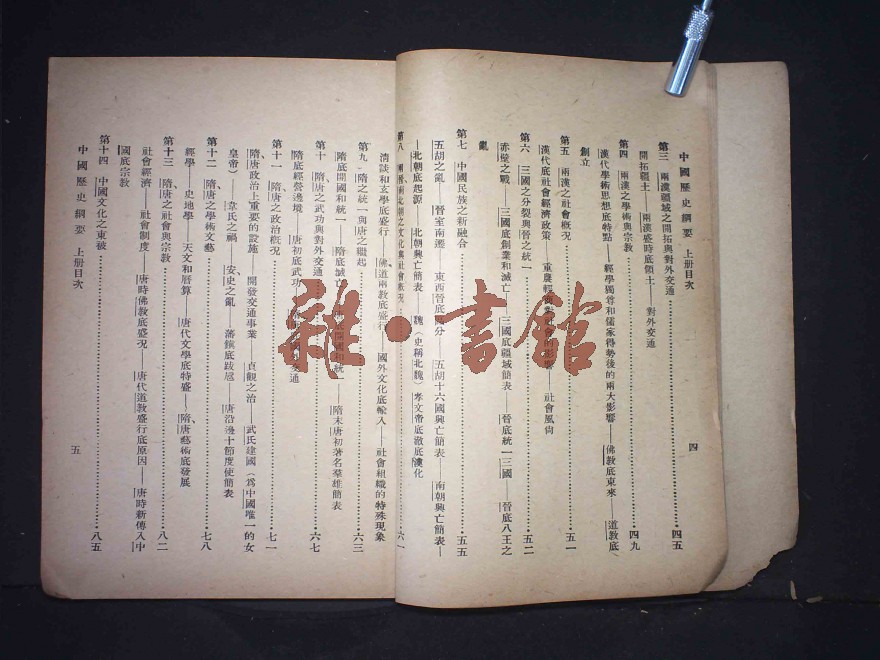 中國歷史綱要 上册目次
四
第三 兩漢疆域之開拓與對外交通…………四五
開拓疆土——兩漢盛時底領土——對外交通
第四 兩漢之學術與宗教…………四九
漢代學術思想底特點——經學獨尊和儒家得勢後的兩大影響——佛教底東來——道教底
創立
第五 兩漢之社會概況…………五一
漢代底社會經濟政策——重農輕商對社會的影響——社會風尚
第六 三國之分裂與晉之統一…………五二
赤壁之戰——三國底創業和滅亡——三國底疆域簡表——晉底統一三國——晉底八王之
亂
第七 中國民族之新融合…………五五
五胡之亂——晉室南遷——東西晉底區分——五胡十六國興亡簡表——南朝興亡簡表—
—北朝底起源——北朝興亡簡表——魏（史稱北魏）孝文帝底澈底漢化
第八 兩晉南北朝之文化與社會概況…………六一
清談和玄學底盛行——佛道兩教底盛行——國外文化底輸入——社會組織的特殊現象
第九 隋之統一與唐之繼起…………六三
隋底開國和統一——隋底滅亡——唐底開國和統一——隋末唐初著名羣雄簡表
第十 隋唐之武功與對外交通…………六七
隋底經營邊境——唐初底武功——交通
第十一 隋唐之政治概況…………七一
隋唐政治上重要的設施——開發交通事業——貞觀之治——武氏建國（爲中國唯一的女
皇帝）——韋氏之禍——安史之亂——藩鎮底跋扈——唐沿邊十節度使簡表
第十二 隋唐之學術文藝…………七八
經學——史地學——天文和曆算——唐代文學底特盛——隋唐藝術底發展
第十三 隋唐之社會與宗教…………八二
社會經濟——社會制度——唐時佛教底盛況——唐代道教盛行底原因——唐時新傳入中
國底宗教
第十四 中國文化之東被…………八五
中國歷史綱要 上册目次
五
雜·書館